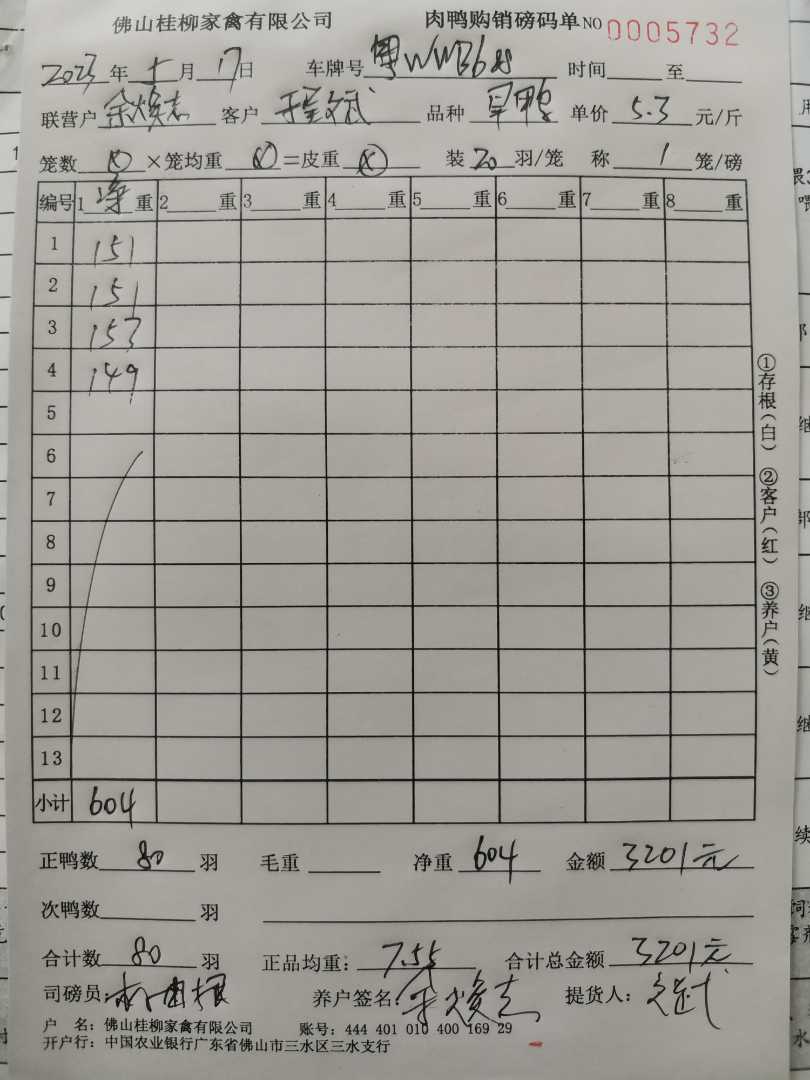 佛山桂柳家禽有限公司 肉鸭购销磅码单 NO 0005732
2023年 十 月 17 日 车牌号 粤WWB6 时间 至
联营户 余焕志 客户 程文斌 品种 单价 5.3 元/斤
笼数 × 笼均重 = 皮重 装 20 羽/笼 称 1 笼/磅
编号 1 净 重 2 重 3 重 4 重 5 重 6 重 7 重 8 重
1 151
2 151
3 153
4 149
5
6
7
8
9
10
11
12
13
小计 604
正鸭数 80 羽 毛重 净重 604 金额 3201元
次鸭数 羽
合计数 80 羽 正品均重: 7.55 合计总金额 3201元
司磅员: 养户签名: 余焕志 提货人: 文斌
户 名: 佛山桂柳家禽有限公司 账号: 444 401 010 400 169 29
开户行: 中国农业银行广东省佛山市三水区三水支行
①存根(白) ②客户(红) ③养户(黄)